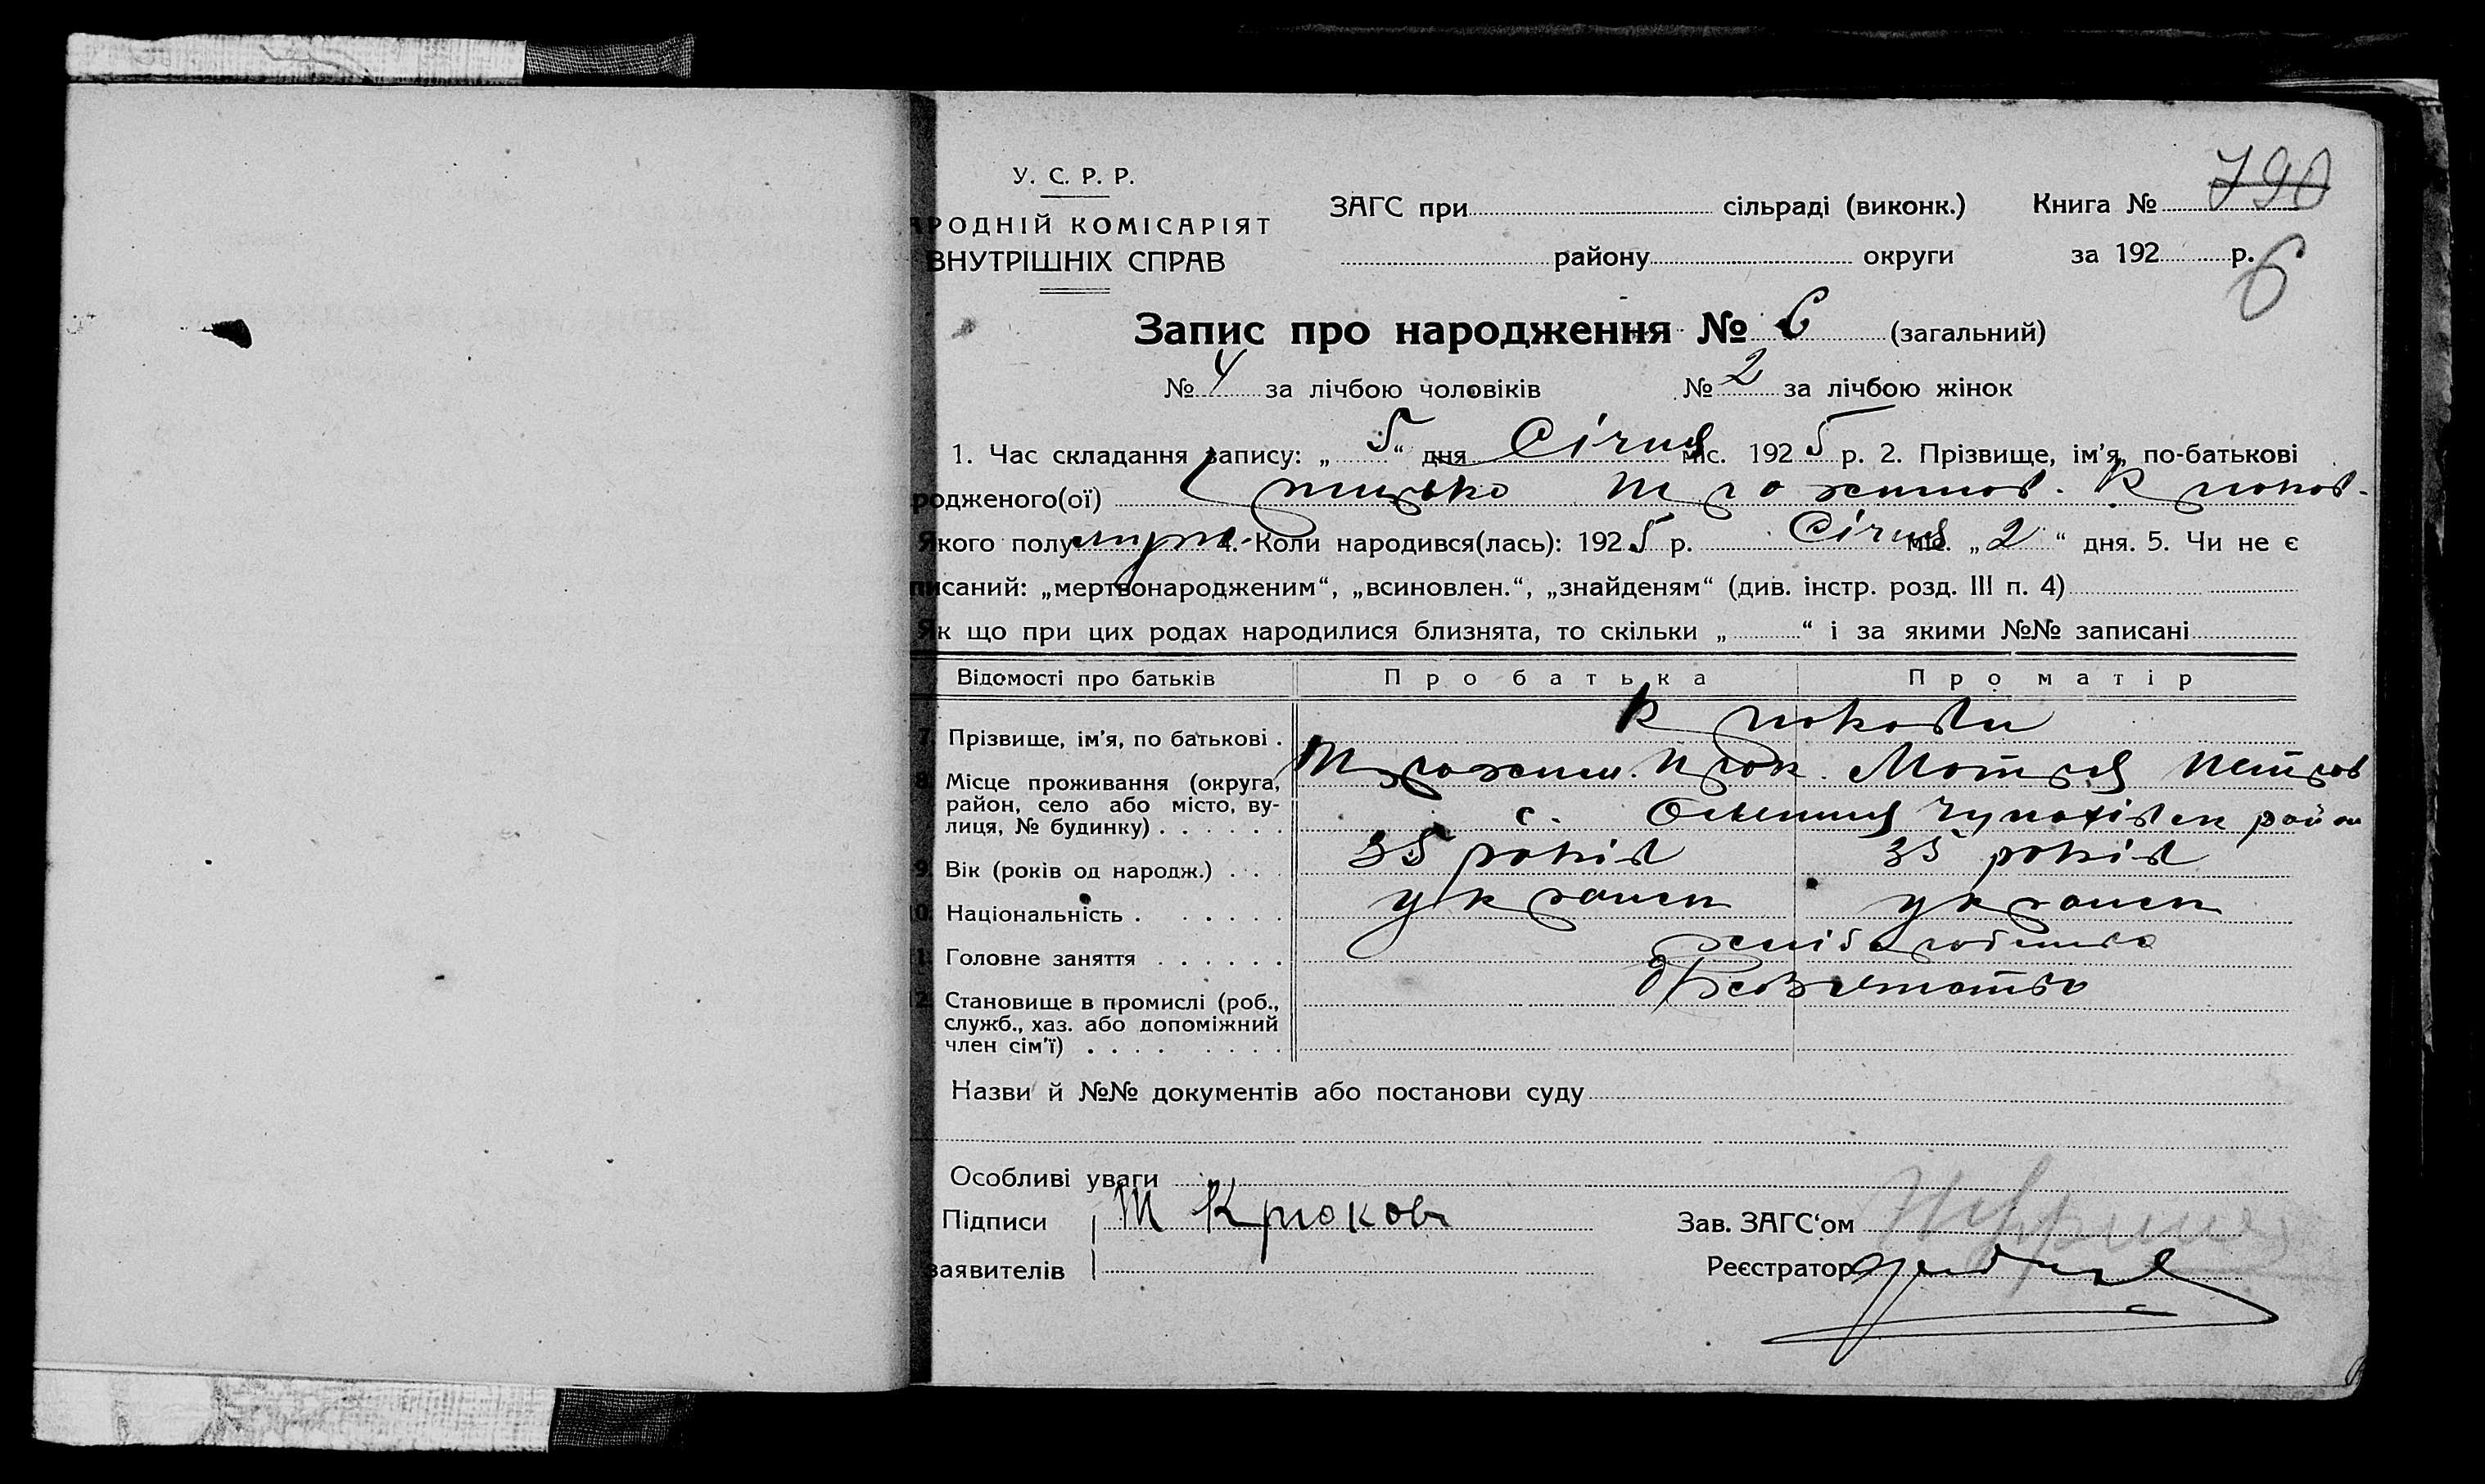 790
У. С. Р. Р.
РОДНІЙ КОМІСАРІЯТ
ВНУТРІШНІХ СПРАВ
ЗАГС при сільраді (виконк.) Книга №
району округи за 192 р.
6
Запис про народження № 6 (загальний)
№ 4 за лічбою чоловіків № 2 за лічбою жінок
1. Час складання запису: „ 5 “ дня Січня міс. 192 5 р. 2. Прізвище, ім’я, по-батькові
родженого(ої) Крюков.
Якого полу 4. Коли народився(лась): 192 5 р. Січня міс. „ 2 “ дня. 5. Чи не є
писаний: „мертвонародженим“, „всиновлен.“, „знайденям“ (див. інстр. розд. III п. 4)
Як що при цих родах народилися близнята, то скільки „ “ і за якими №№ записані
Відомості про батьків Про батька Про матір
7. Прізвище, ім’я, по батькові . Крюкови
Трохим. Прок. Мотря Петров
8. Місце проживання (округа,
район, село або місто, ву-
лиця, № будинку) . . . . . . с. район
9. Вік (років од народж.) . . . 35 років 35 років
10. Національність . . . . . . українск українск
11. Головне заняття . . . . . . хліборобство
12. Становище в промислі (роб.,
служб., хаз. або допоміжний
член сім’ї) . . . . . . . .
Назви й №№ документів або постанови суду
Особливі уваги
Підписи Т Крюков Зав. ЗАГС‘ом
заявителів Реєстратор